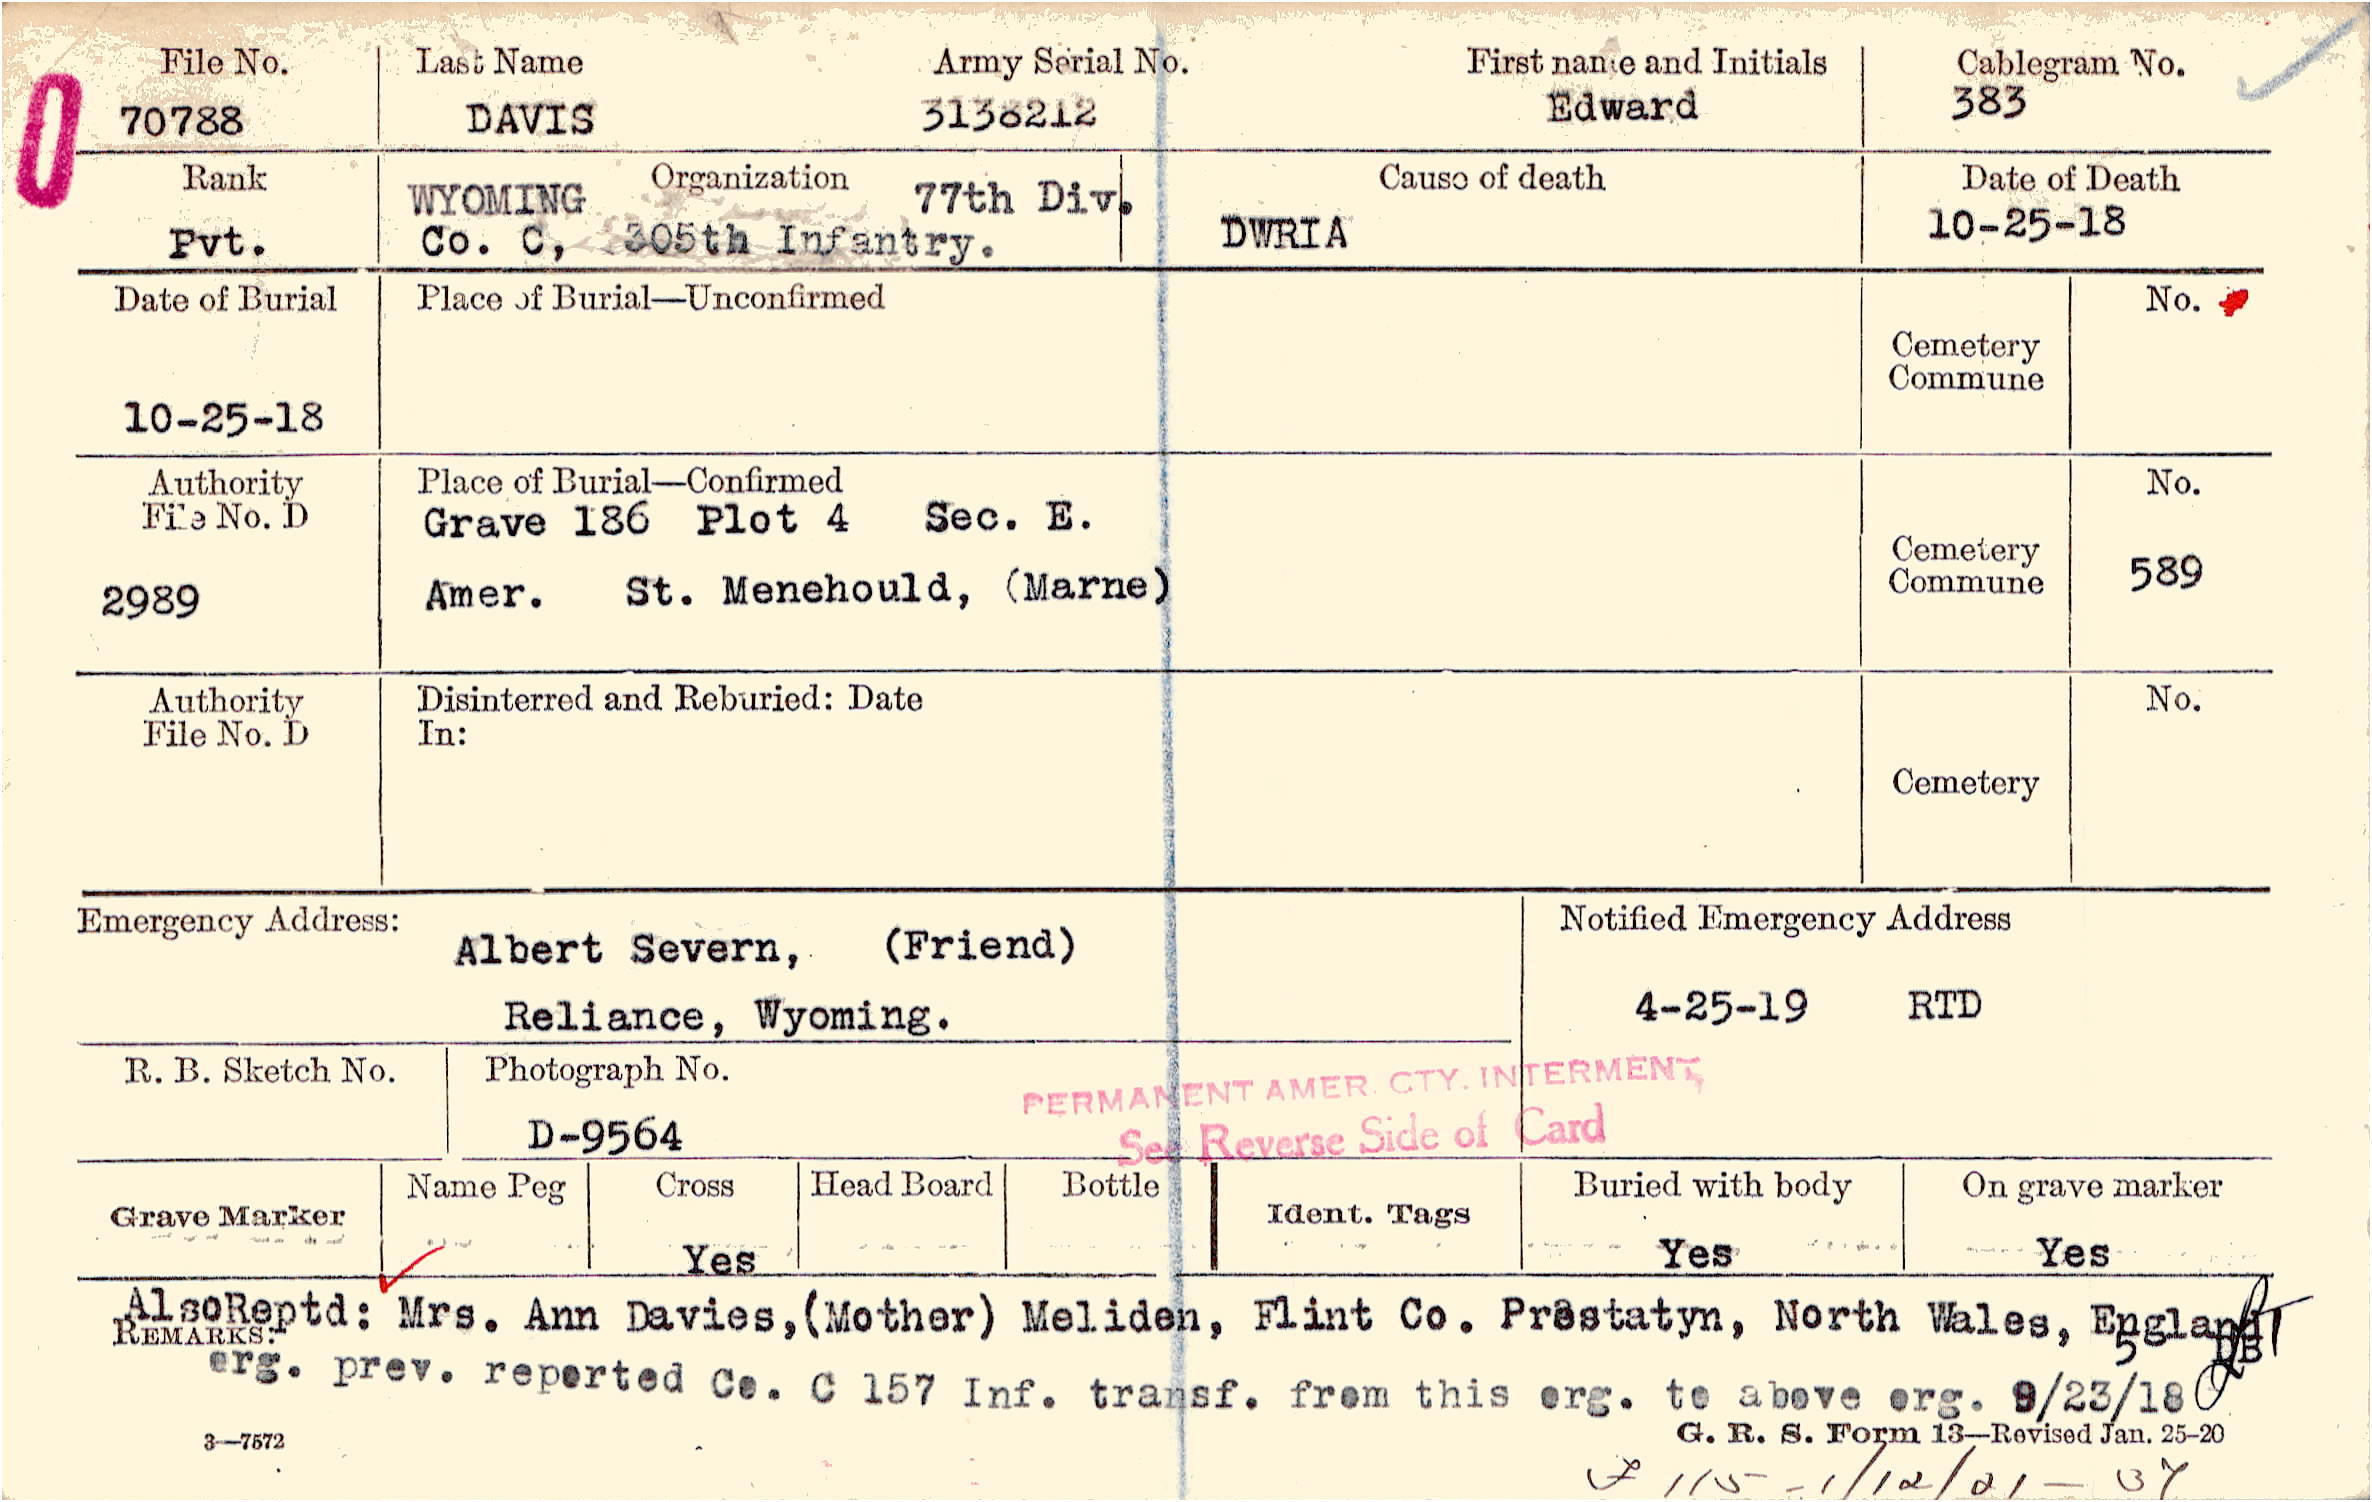 File No. Last Name Army Serial No. First name and Initials Cablegram No.
70788 DAVIS 3138212 Edward 383
Rank Organization Cause of death Date of Death
WYOMING 77th Div.
Pvt. Co. C, 305th Infantry. DWRIA 10-25-18
Date of Burial Place of Burial—Unconfirmed No.
Cemetery
Commune
10-25-18
Authority Place of Burial—Confirmed No.
File No. D Grave 186 Plot 4 Sec. E.
Cemetery
Commune 589
2989 Amer. St. Menehould, (Marne)
Authority Disinterred and Reburied: Date No.
File No. D In:
Cemetery
Emergency Address: Notified Emergency Address
Albert Severn, (Friend)
Reliance, Wyoming. 4-25-19 RTD
R. B. Sketch No. Photograph No.
D-9564
PERMANENT AMER. CTY. INTERMENT,
See Reverse Side of Card
Name Peg Cross Head Board Bottle Buried with body On grave marker
Grave Marker Ident. Tags
Yes Yes Yes
AlsoReptd: Mrs. Ann Davies,(Mother) Meliden, Flint Co. Prestatyn, North Wales, England
REMARKS:
org. prev. reported Co. C 157 Inf. transf. from this org. to above org. 9/23/18
3—7572 G. R. S. Form 13—Revised Jan. 25-20